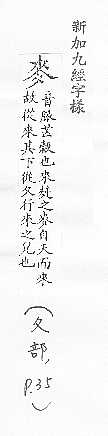 新加九經字樣
麥
音脉芒穀也來麰之麥自天而來
故從來其下從夊行來之皃也
(夊部, P.35)